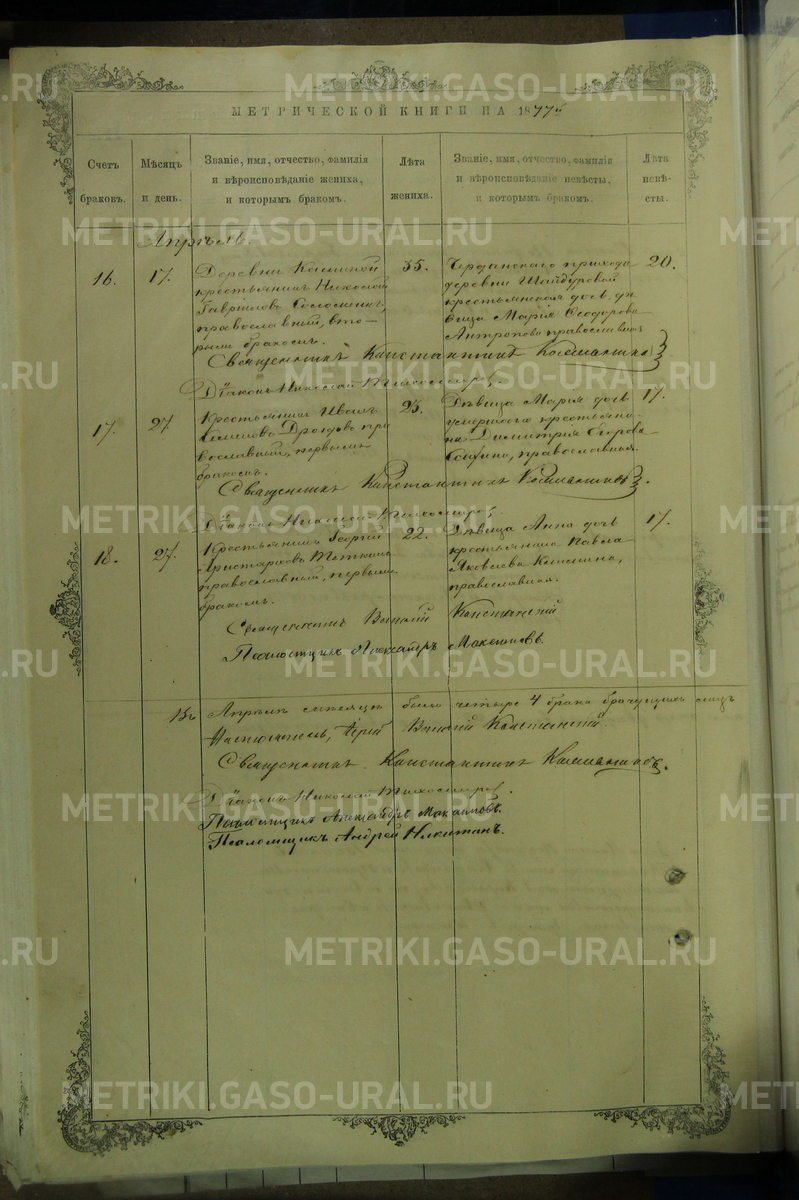 МЕТРИЧЕСКОЙ КНИГИ НА 1877
Счетъ браковъ.
Мѣсяцъ и день.
Званіе, имя, отчество, фамилія
и вѣроисповѣданіе жениха,
и которымъ бракомъ.
Лѣта жениха.
Званіе, имя, отчество, фамилія
и вѣроисповѣданіе невѣсты,
и которымъ бракомъ.
Лѣта невѣ-
сты.
Апрѣль.
16.
17.
Деревни
крестьянинъ Николай
Гавріиловъ
православный, вто-
рымъ бракомъ.
35.
прихода
деревни Шайдуровой
крестьянская дочь дѣ-
вица Марія Ѳеодорова
Антропова православная
20.
Священникъ Константинъ
Діаконъ Николай
17.
27.
Крестьянинъ Иванъ
Дроздовъ пра
вославный, первымъ
бракомъ.
25.
Дѣвица Марія дочь
умершаго крестьяни-
на Димитрія Егорова
православная.
17.
Священникъ Константинъ
Діаконъ Николай
18.
27.
Крестьянинъ Георгій
Аристарховъ
православный, первымъ
бракомъ.
22.
Дѣвица Анна дочь
крестьянина Павла
Яковлева
православная.
17.
Священникъ
Псаломщикъ Александръ Максимовъ.
Въ Апрѣлѣ мѣсяцѣ было четыре 4 брака брачущихся лицъ
Настоятель, Іерей
Священникъ Константинъ
Діаконъ Николай
Псаломщикъ Александръ Максимовъ.
Псаломщикъ Андрей Никитинъ.
METRIKI.GASO-URAL.RU